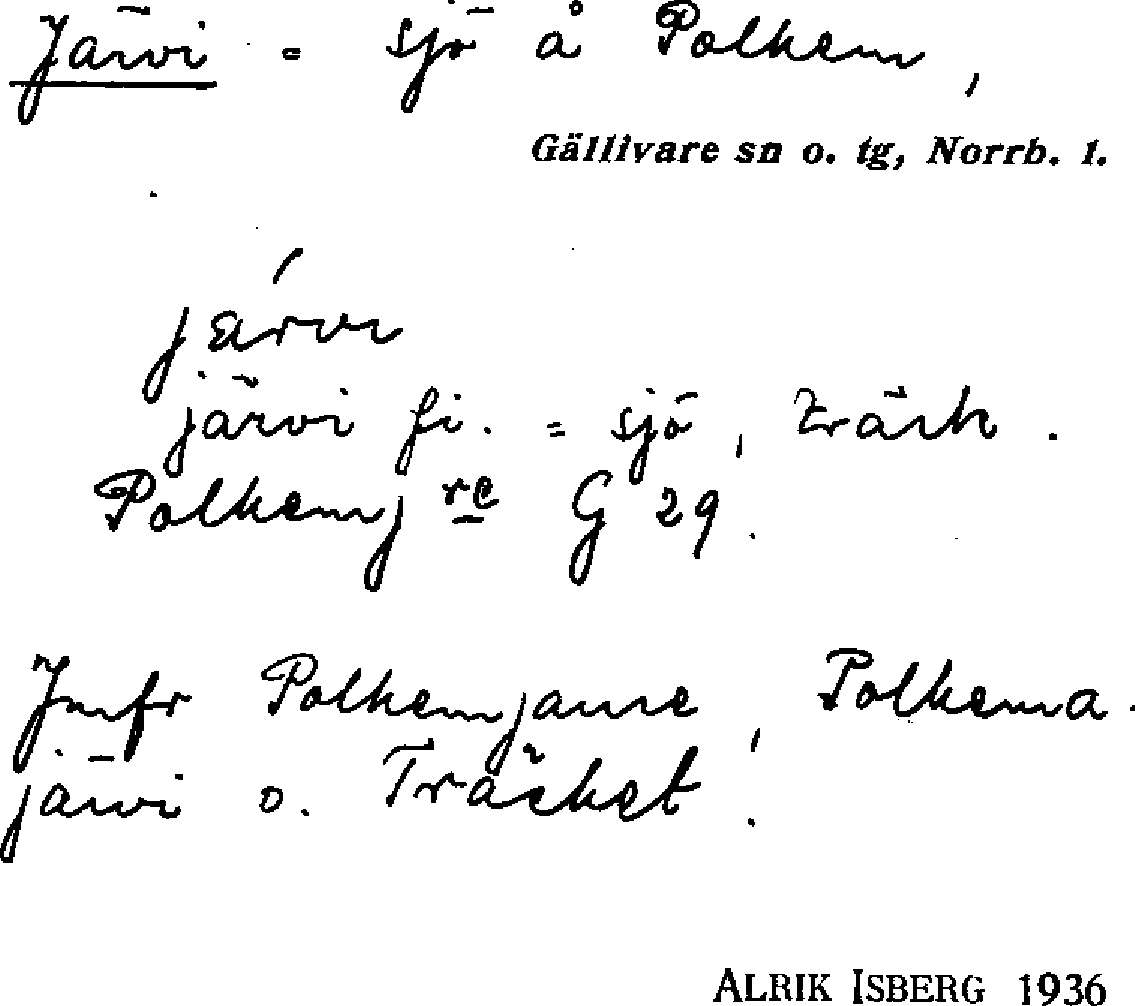 Järvi = sjö å Polkem,
Gällivare sn o. tg, Norrb. l.
járvi
järvi fi. = sjö, träsk.
Polkemj re G 29.
Jmfr Polkemjaure, Polkema-
järvi o. Träsket.
ALRIK ISBERG 1936